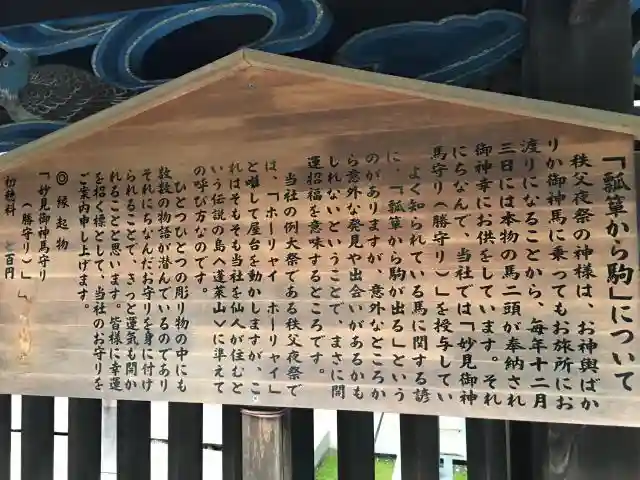 「瓢箪から駒」について
秩父夜祭の神様は、お神輿ばか
りか御神馬に乗ってもお旅所にお
渡りになることから、毎年十二月
三日には本物の馬二頭が奉納され
御神幸にお供をしています。それ
にちなんで、当社では「妙見御神
馬守り(勝守り)」を授与してい
よく知られている馬に関する諺
に、「瓢箪から駒が出る」という
のがありますが、意外なところか
ら意外な発見や出会いがあるかも
しれないということで、まさに開
運招福を意味するところです。
当社の例大祭である秩父夜祭で
は、「ホーリャイ ホーリャイ」
と囃して屋台を動かしますが、こ
れはそもそも当社を仙人が住むと
いう伝説の島へ蓬莱山〉に準えて
の呼び方なのです。
ひとつひとつの彫り物の中にも
数数の物語が潜んでいるのであり
それにちなんだお守りを身に付け
られることで、きっと運気も開か
れることと思います。皆様に幸運
を招く標として、当社のお守りを
ご案内申し上げます。
◎ 縁起物
「妙見御神馬守り
(勝守り)」
初穂料
百円